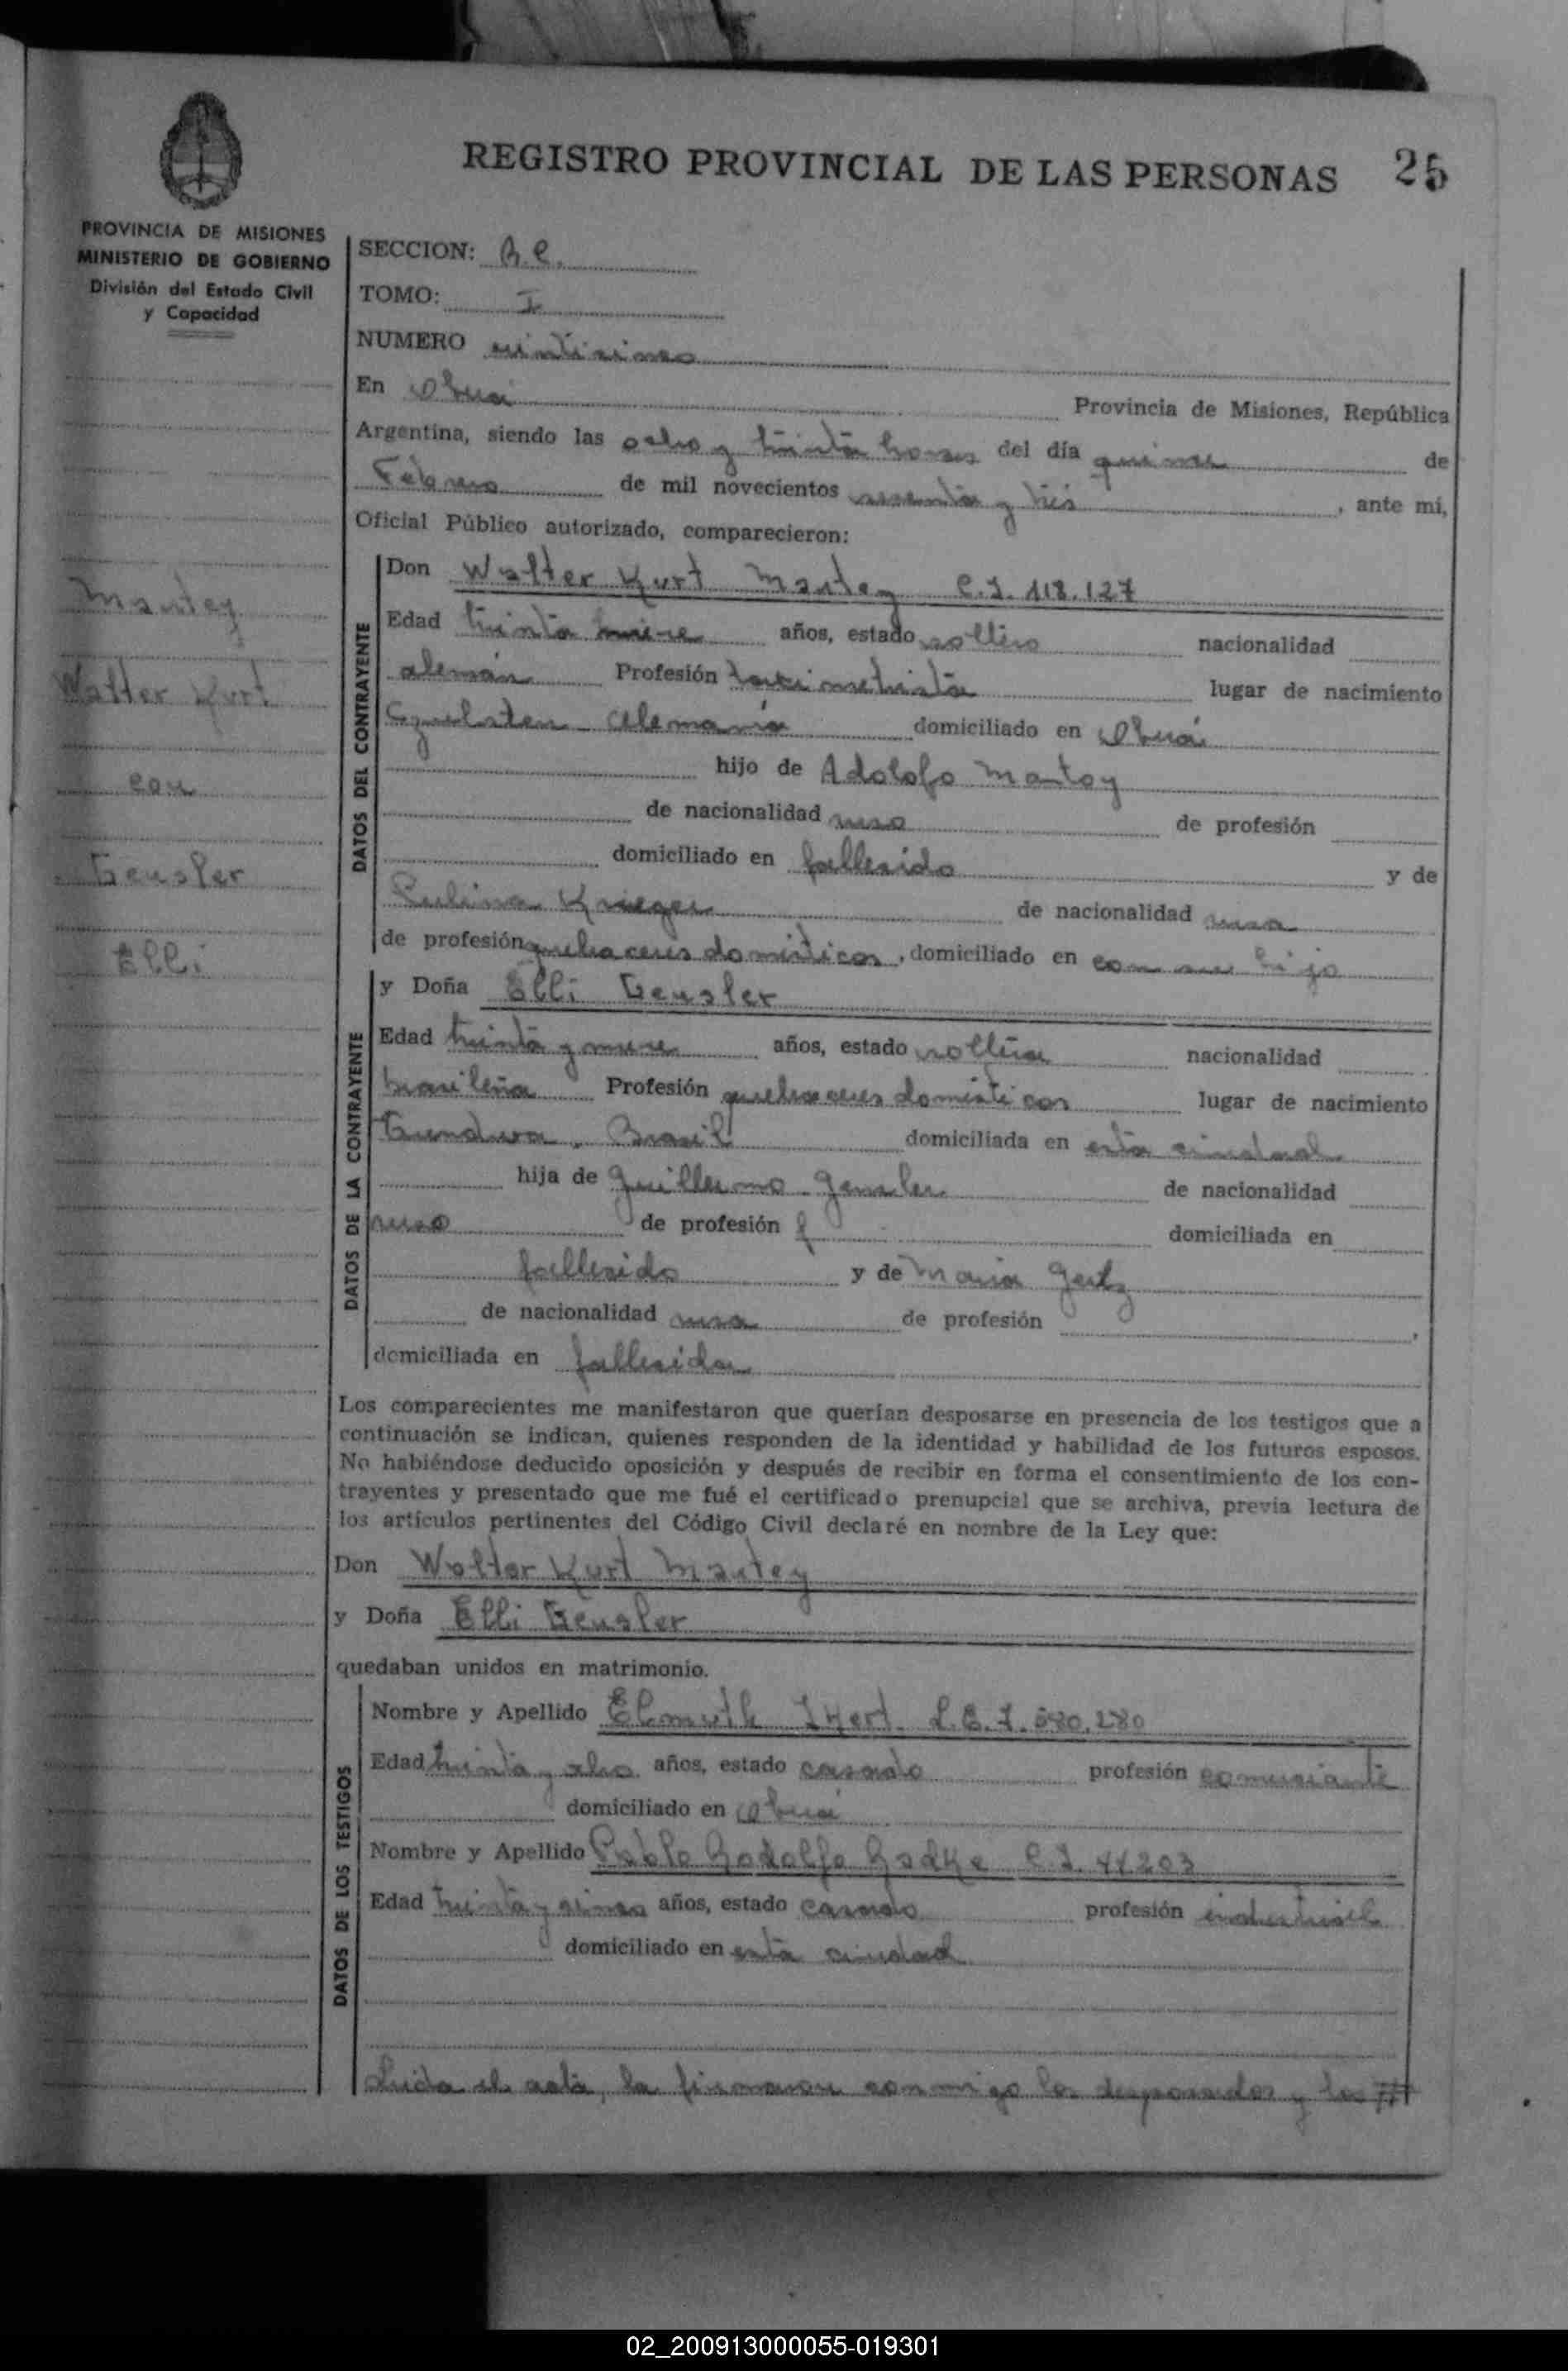 REGISTRO PROVINCIAL DE LAS PERSONAS 25
PROVINCIA DE MISIONES
MINISTERIO DE GOBIERNO
División del Estado Civil
y Capacidad
Mantey
Walter Kurt
con
Gensler
Elli
SECCION: R.C.
TOMO: I
NUMERO veinticinco
En Oberá Provincia de Misiones, República
Argentina, siendo las ocho y treinta horas del día quince de
Febrero de mil novecientos sesenta y tres, ante mi,
Oficial Público autorizado, comparecieron:
DATOS DEL CONTRAYENTE
Don Walter Kurt Mantey C.I. 118.127
Edad treinta nueve años, estado soltero nacionalidad
alemán Profesión lugar de nacimiento
Alemania domiciliado en Oberá
hijo de Adolofo Mantey
de nacionalidad ruso de profesión
domiciliado en fallesido y de
Krieger de nacionalidad rusa
de profesión quehaceres domésticos, domiciliado en con su hijo
DATOS DE LA CONTRAYENTE
y Doña Elli Gensler
Edad treinta y nueve años, estado soltera nacionalidad
brasileña Profesión quehaceres domésticos lugar de nacimiento
Brasil domiciliada en esta ciudad
hija de Guillermo Gensler de nacionalidad
ruso de profesión f domiciliada en
fallesido y de Maria
de nacionalidad rusa de profesión ,
domiciliada en fallesida
Los comparecientes me manifestaron que querían desposarse en presencia de los testigos que a
continuación se indican, quienes responden de la identidad y habilidad de los futuros esposos.
No habiéndose deducido oposición y después de recibir en forma el consentimiento de los con-
trayentes y presentado que me fué el certificado prenupcial que se archiva, previa lectura de
los artículos pertinentes del Código Civil declaré en nombre de la Ley que:
Don Walter Kurt Mantey
y Doña Elli Gensler
quedaban unidos en matrimonio.
DATOS DE LOS TESTIGOS
Nombre y Apellido Elmuth
Edad treinta y ocho años, estado casado profesión comerciante
domiciliado en Oberá
Nombre y Apellido Pablo Rodolfo Radke C.I. 44.203
Edad treinta y cinco años, estado casado profesión industrial
domiciliado en esta ciudad
Leida el acta, la firmaron conmigo los desposados y los
02_200913000055-019301